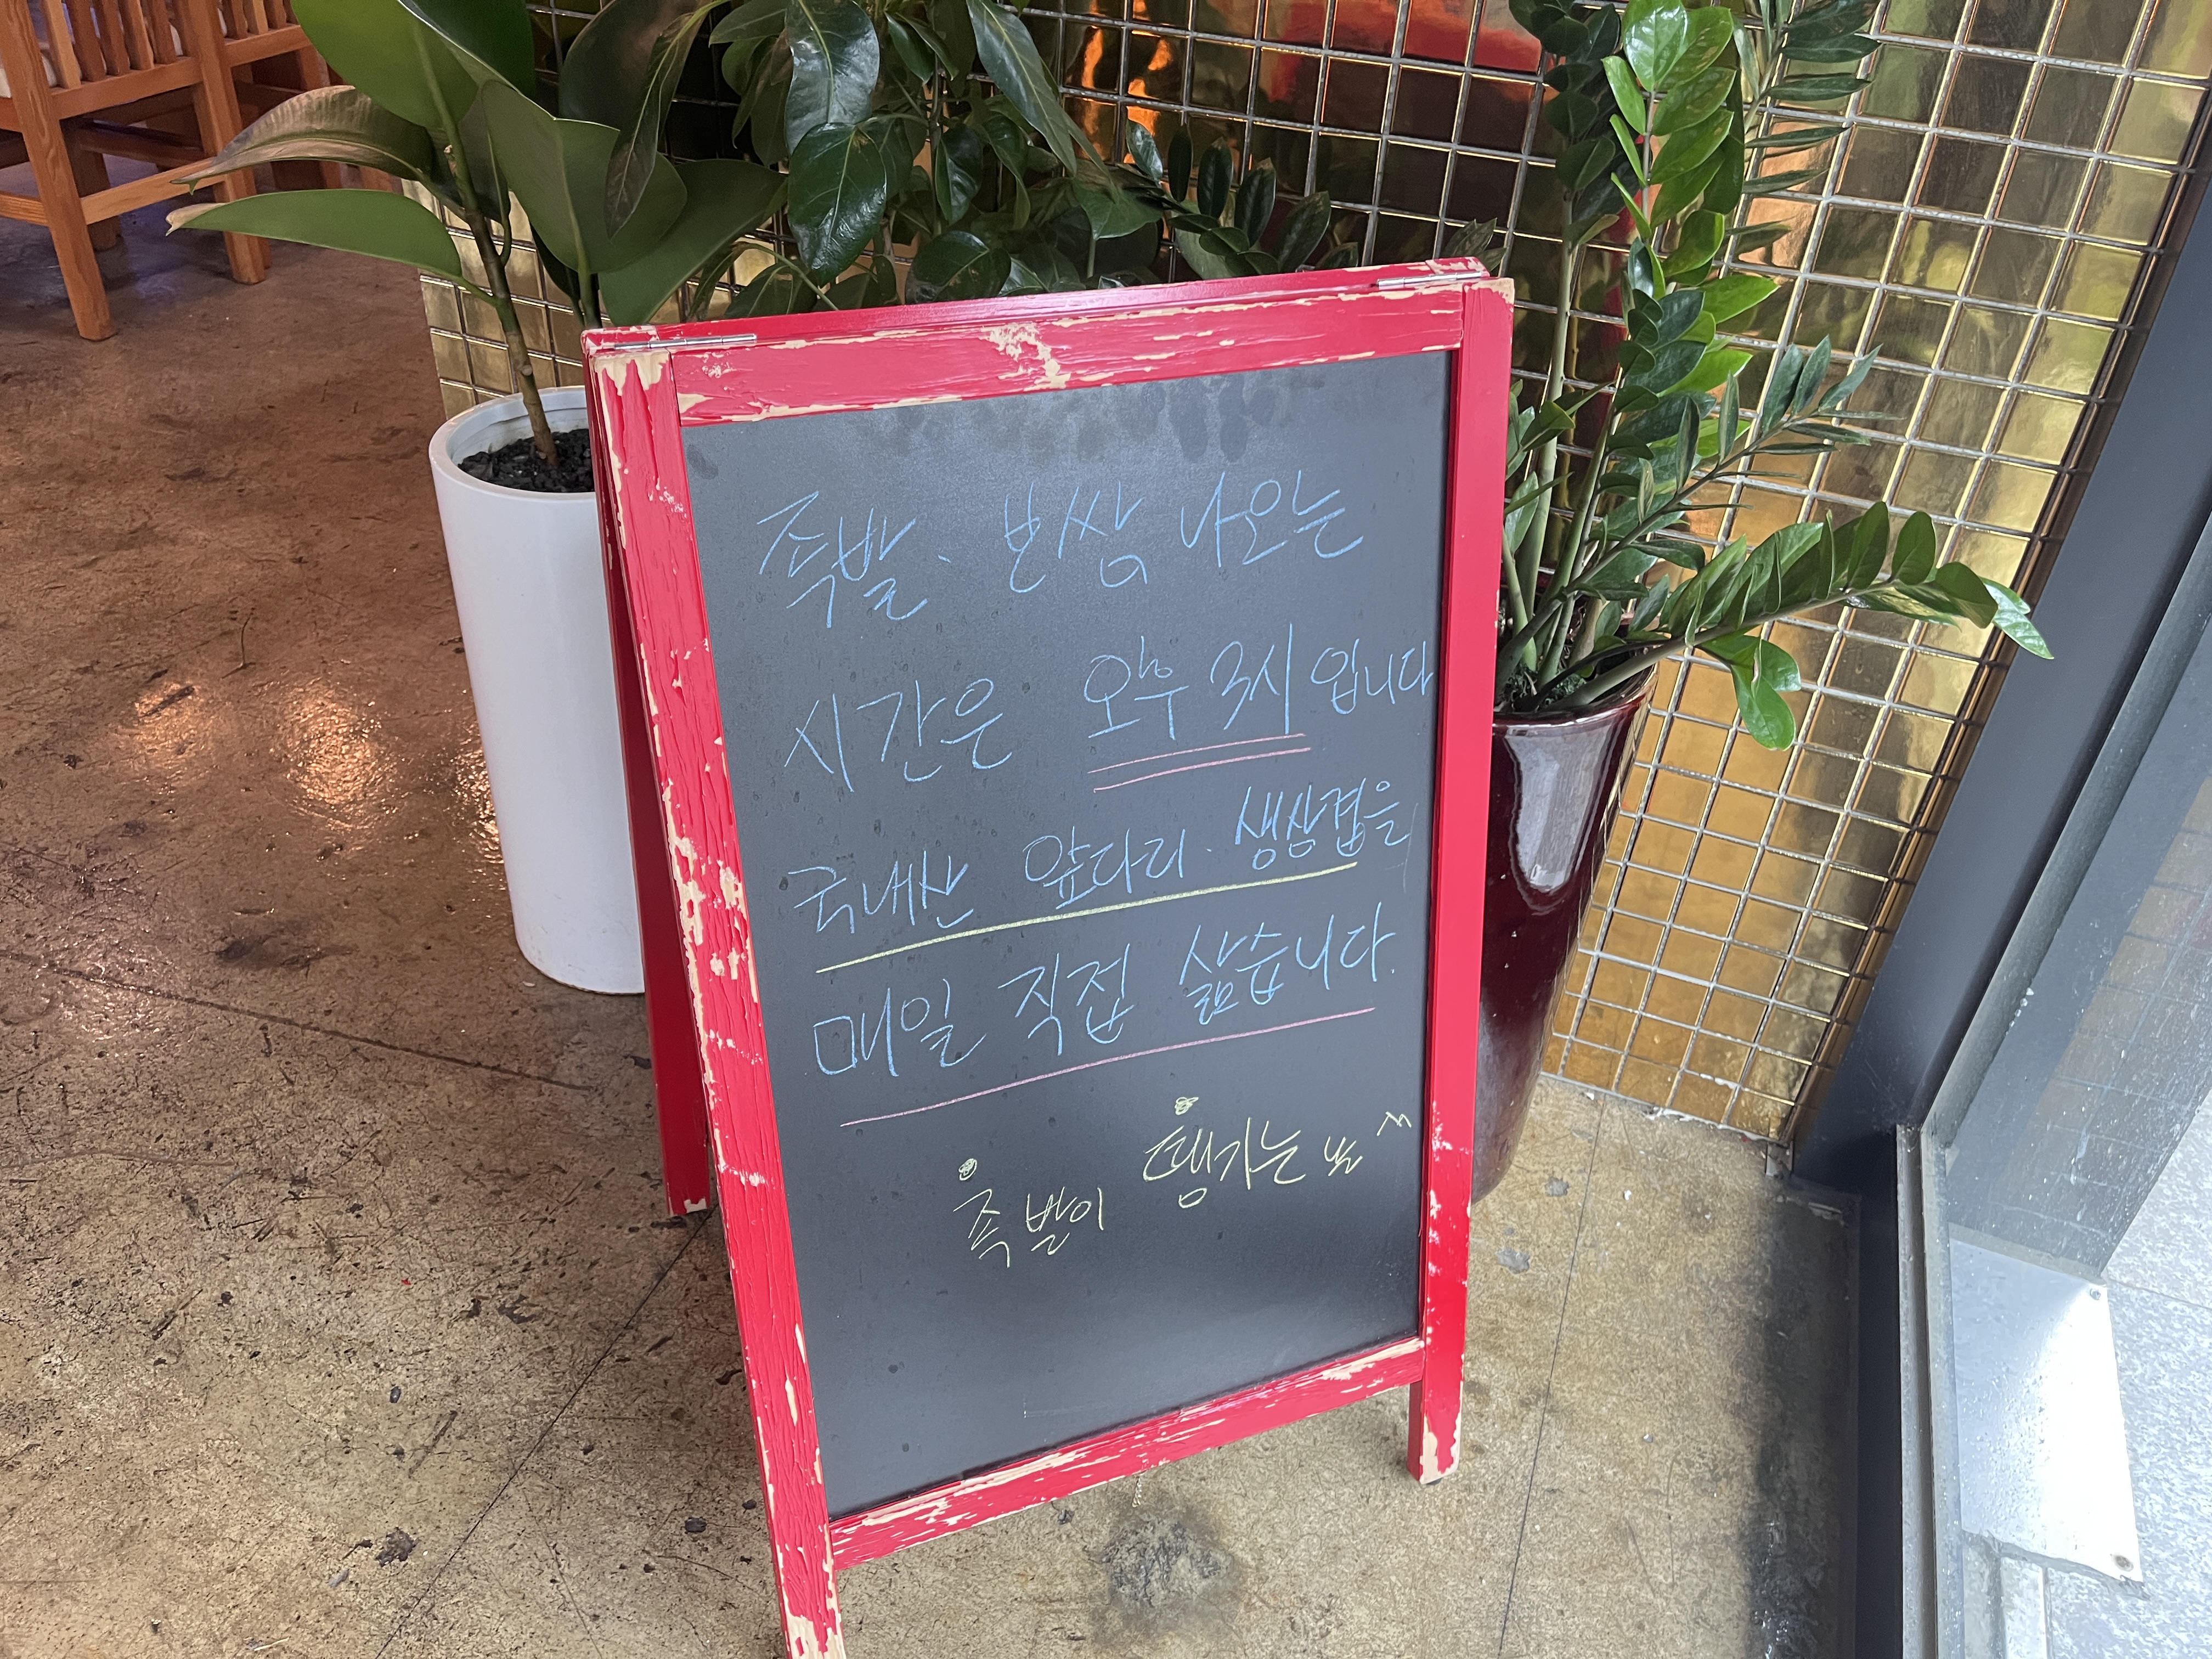 족발. 보쌈 나오는
시간은 오후 3시 입니다
국내산 앞다리. 생삼겹을
매일 직접 삶습니다.
족발이 땡기는 날